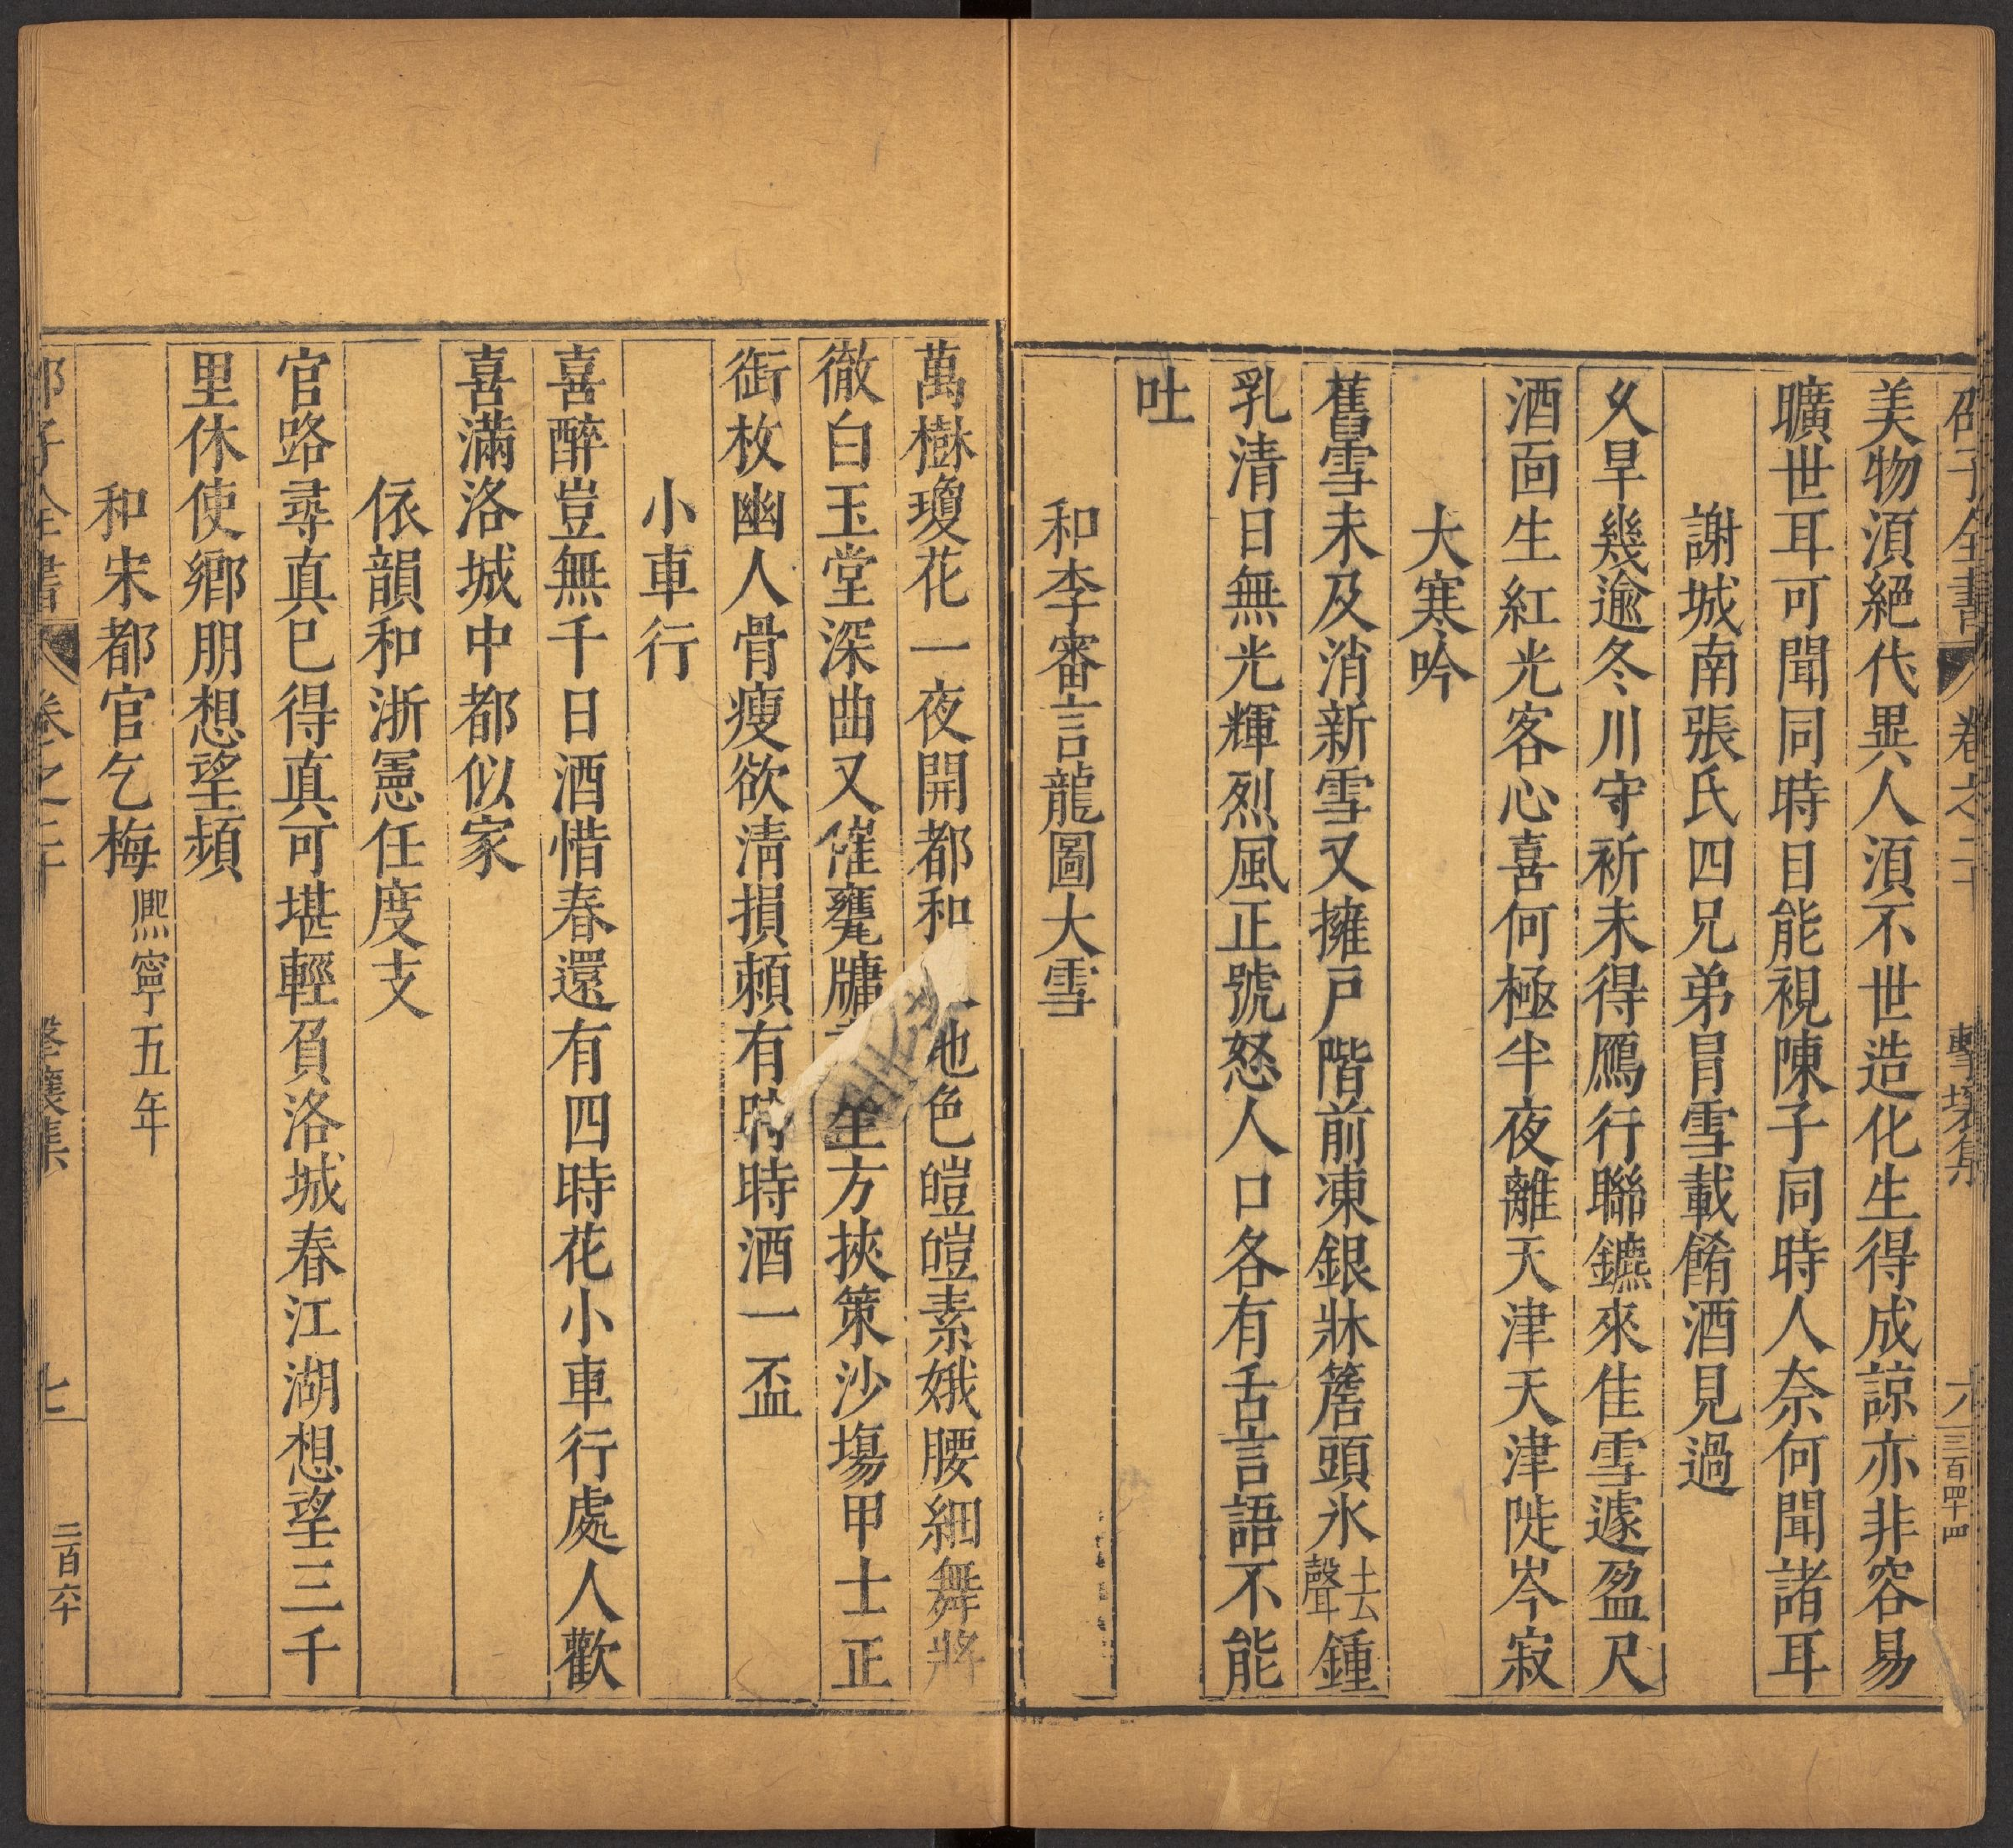 邵子全書 卷之二十 擊壤集 六 三百四十四
美物須絕代異人須不世造化生得成諒亦非容易
曠世耳可聞同時目能視陳子同時人奈何聞諸耳
謝城南張氏四兄弟冐雪載餚酒見過
乆旱幾逾冬川守祈未得鴈行聯鑣來佳雪遽盈尺
酒靣生紅光客心喜何極半夜離天津天津陡岑寂
大寒吟
舊雪未及消新雪又擁戸階前凍銀牀簷頭氷去聲鍾
乳清日無光輝烈風正號怒人口各有舌言語不能
吐
和李審言龍圖大雪
萬樹瓊花一夜開都和地色皚皚素娥腰細舞將
徹白玉堂深曲又催甕牖坐方挾策沙塲甲士正
銜枚幽人骨瘦欲清損頼有時時酒一盃
小車行
喜醉豈無千日酒惜春還有四時花小車行處人歡
喜滿洛城中都似家
依韻和浙憲任度支
官路尋真巳得真可堪輕負洛城春江湖想望三千
里休使鄉朋想望頻
和宋都官乞梅熈寧五年
邵子全書 卷之二十 擊壤集 七 二百六十